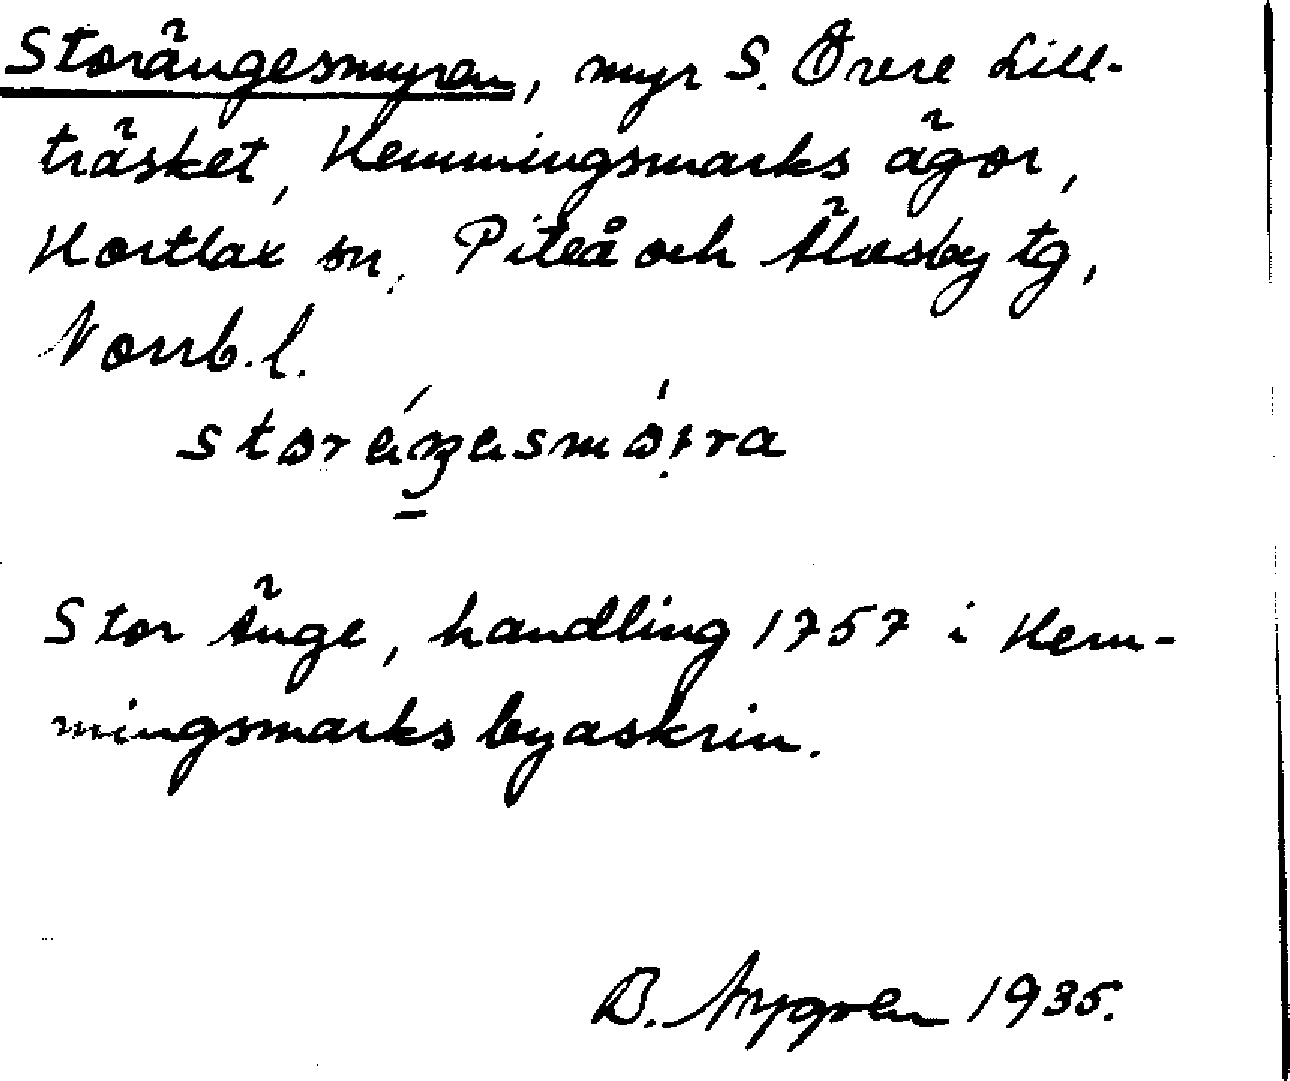 Storängesmyren, myr S. Övre Lill-
träsket, Hemmingsmarks ägor,
Hortlax sn, Piteå och Älvsby tg,
Norrb. l.
Stor Änge, handling 1757 i Hem-
mingsmarks byaskrin.
B. Nygren 1935.